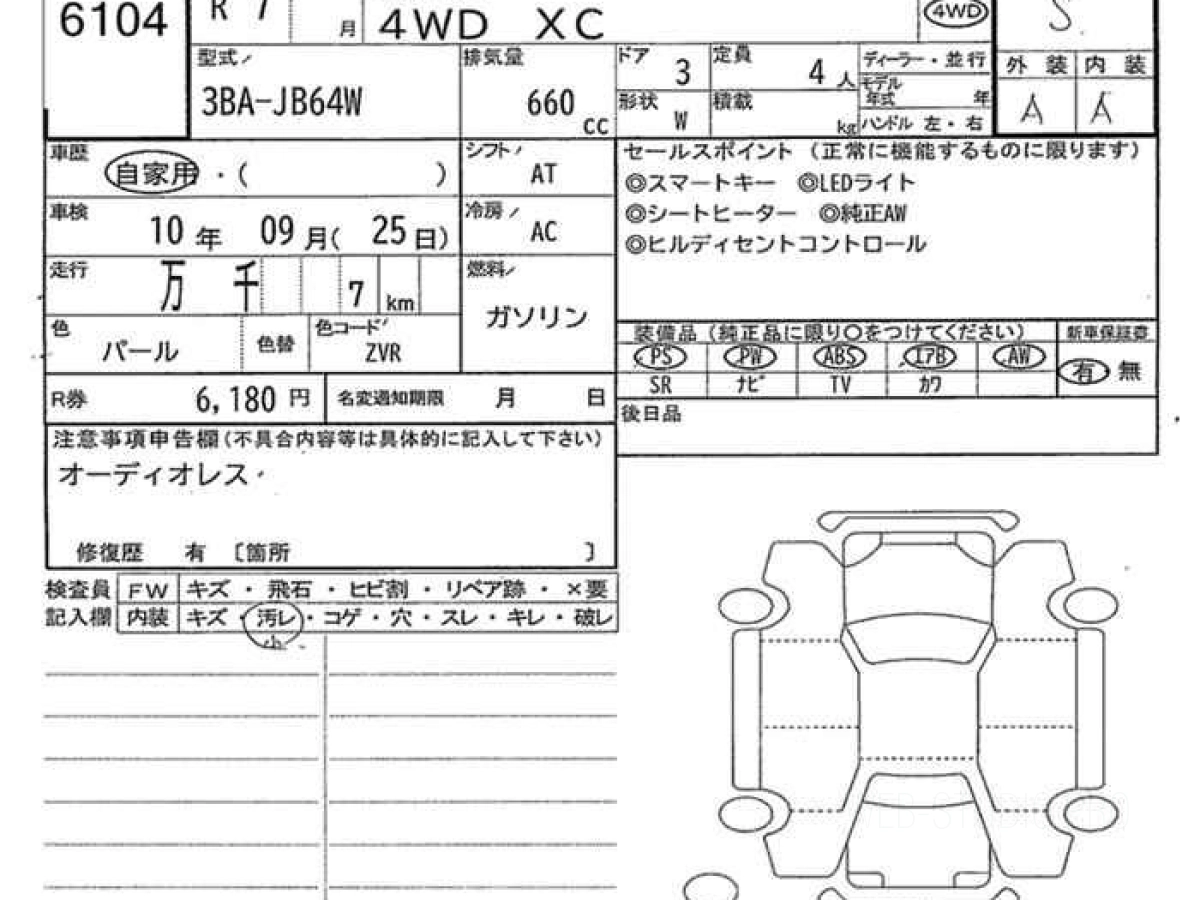 6104
R 7 月
4WD XC
4WD
S
型式
3BA-JB64W
排気量
660 cc
ドア 3
定員 4 人
形状 W
積載 kg
ディーラー・並行
モデル年式 年
ハンドル 左・右
外装 内装
A A
車歴 自家用・( )
シフト AT
セールスポイント (正常に機能するものに限ります)
◎スマートキー ◎LEDライト
◎シートヒーター ◎純正AW
◎ヒルディセントコントロール
車検 10年 09月(25日)
冷房 AC
走行 万 千 7 km
燃料 ガソリン
色 パール 色替 色コード ZVR
装備品 (純正品に限り○をつけてください) 新車保証書
PS PW ABS エアB AW 有 無
SR ナビ TV カワ
R券 6,180 円 名変通知期限 月 日
後日品
注意事項申告欄(不具合内容等は具体的に記入して下さい)
オーディオレス
修復歴 有 〔箇所 〕
検査員 FW キズ・飛石・ヒビ割・リペア跡・×要
記入欄 内装 キズ・汚レ・コゲ・穴・スレ・キレ・破レ
小